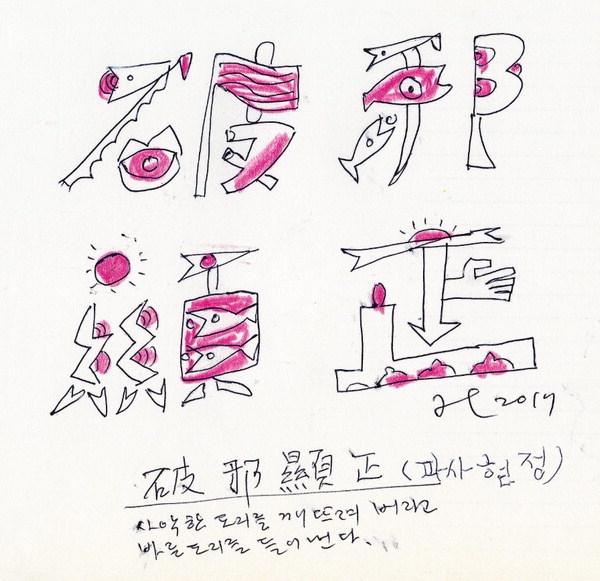 破邪
顯正
2017
破 邪 顯 正 (파사현정)
사악한 도리를 깨뜨려 버리고
바른 도리를 들어낸다.